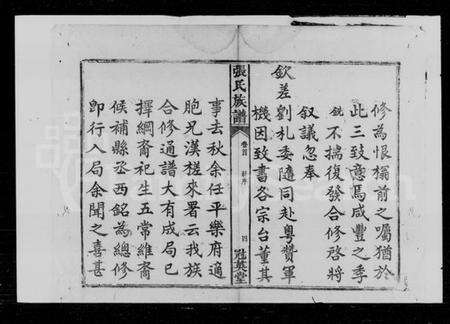 修為恨襧前之囑猶於
此三致意焉咸豐之季
銑不揣復發合修啓將
叙議忽奉
欽差劉札委隨同赴粤贊軍
機因致書各宗台董其
張氏族譜
卷首
四
冠英堂
事去秋余任平樂府適
胞兄漢槎來署云我族
合修通譜大有成局已
擇綱裔祀生五常維裔
候補縣丞西銘為總修
即行入局余聞之喜甚